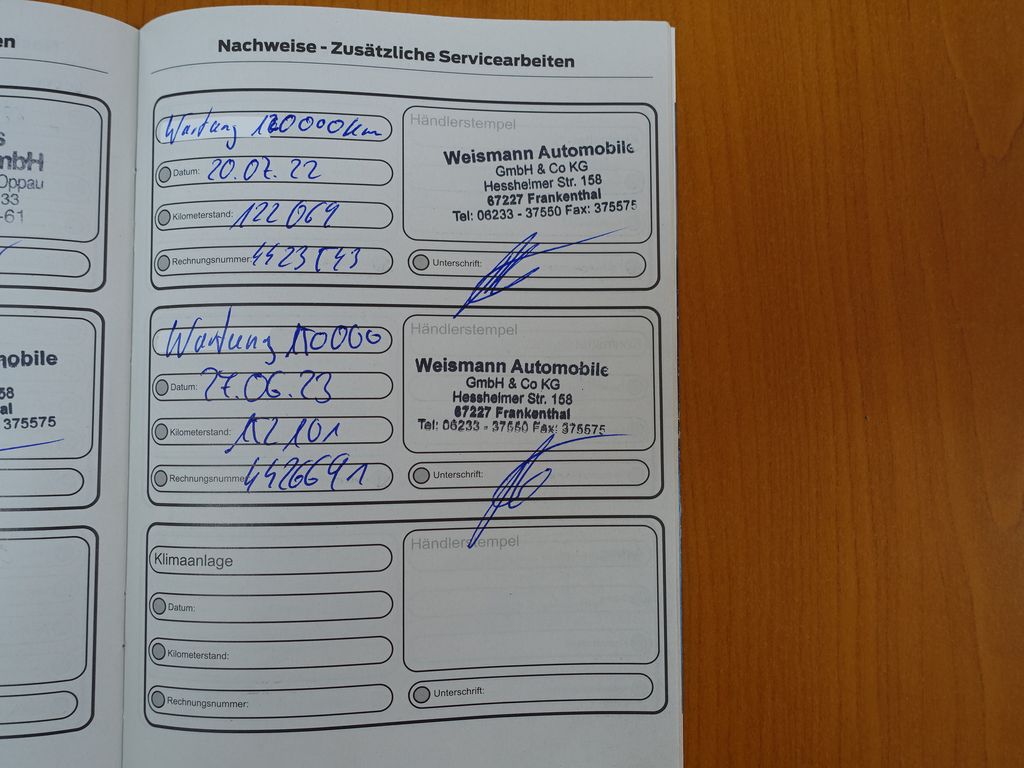 en
s
mbH
Oppau
33
-61
nobile
58
al
375575
Nachweise - Zusätzliche Servicearbeiten
Wartung 120000km
Datum: 20.07.22
Kilometerstand: 122069
Rechnungsnummer: 4423543
Händlerstempel
Weismann Automobile
GmbH & Co KG
Hessheimer Str. 158
67227 Frankenthal
Tel: 06233 - 37550 Fax: 375575
Unterschrift:
Wartung 150000
Datum: 27.06.23
Kilometerstand: 152101
Rechnungsnummer: 4426691
Händlerstempel
Weismann Automobile
GmbH & Co KG
Hessheimer Str. 158
67227 Frankenthal
Tel: 06233 - 37550 Fax: 375575
Unterschrift:
Klimaanlage
Datum:
Kilometerstand:
Rechnungsnummer:
Händlerstempel
Unterschrift: